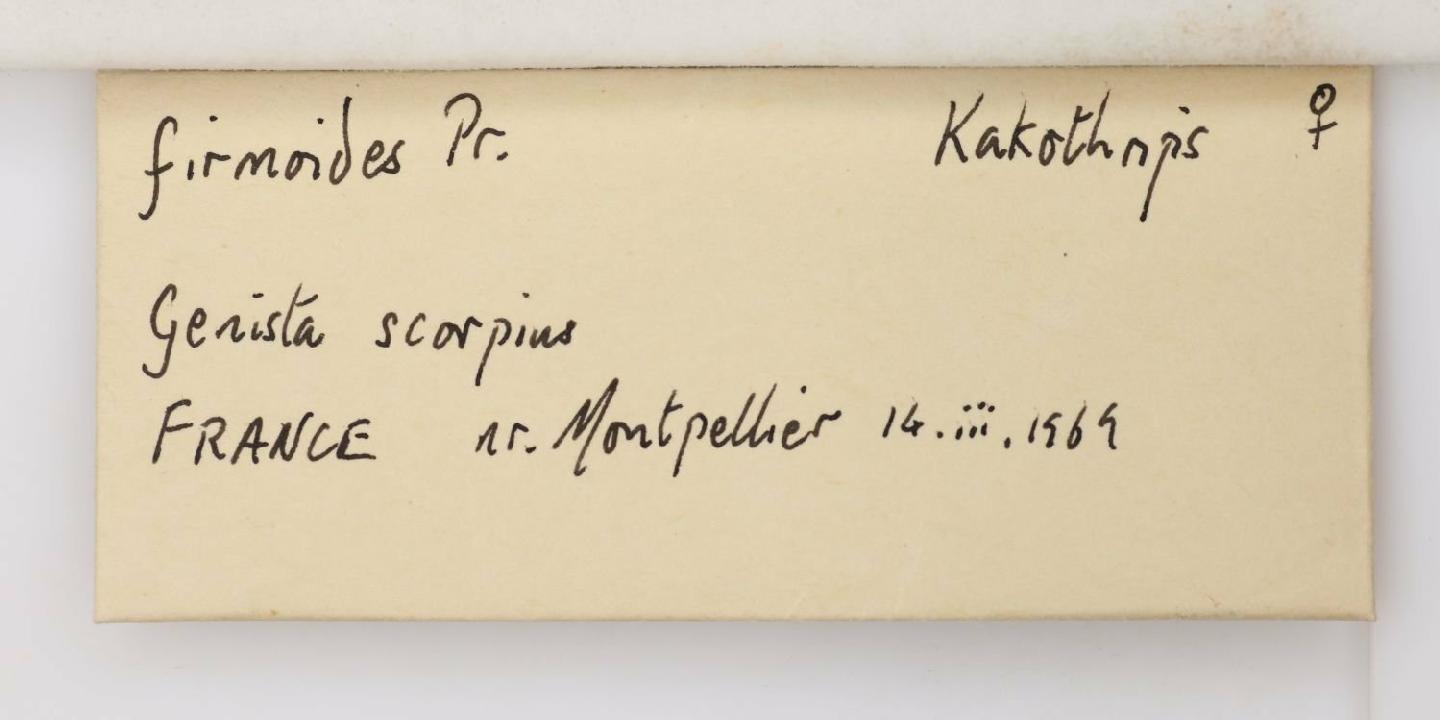 firmoides Pr. Kakothrips ♀
Genista scorpius
FRANCE nr. Montpellier 14.iii.1969